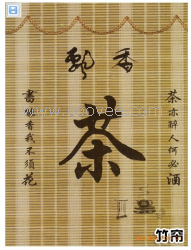 飘香
茶
茶亦醉人何必酒
書能香我不須花
竹帘